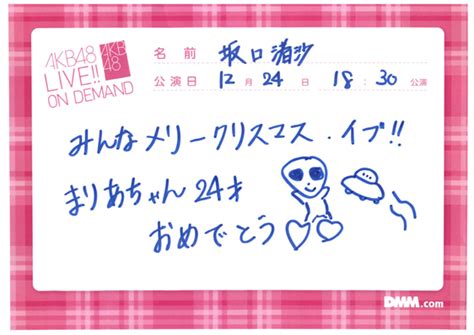 AKB48
LIVE!!
ON DEMAND
AKB
48
名前 坂口渚沙
公演日 12月24日 18:30公演
みんなメリークリスマス・イブ!!
まりあちゃん24才
おめでとう
DMM.com